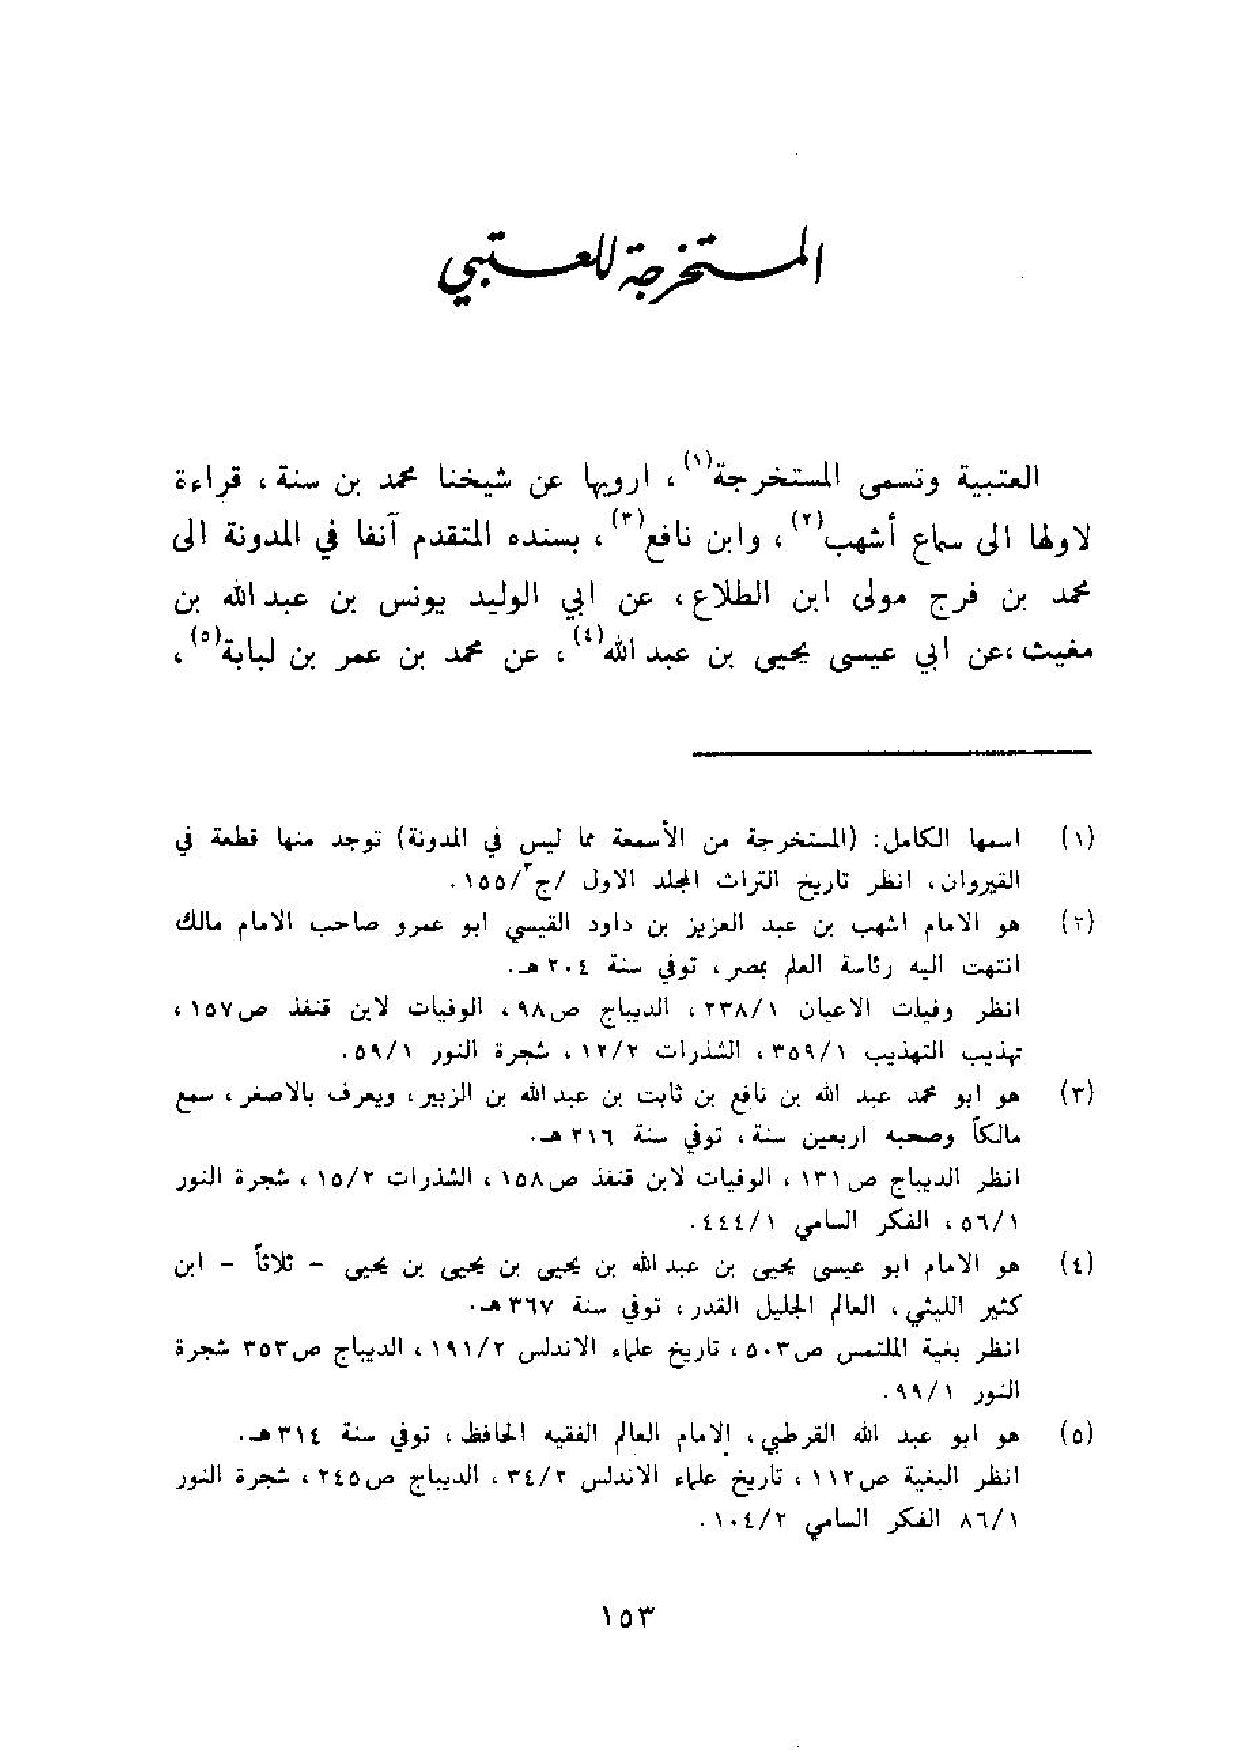 المستخرجة للعتبي
العتبية وتسمى المستخرجة(١)، ارويها عن شيخنا محمد بن سنة، قراءة
لاولها الى سماع أشهب(٢)، وابن نافع(٣)، بسنده المتقدم آنفا في المدونة الى
محمد بن فرج مولى ابن الطلاع، عن ابي الوليد يونس بن عبدالله بن
مغيث،عن ابي عيسى يحيى بن عبد الله(٤)، عن محمد بن عمر بن لبابة(٥)،
(١) اسمها الكامل: (المستخرجة من الأسمعة مما ليس في المدونة) توجد منها قطعة في
القيروان، انظر تاريخ التراث المجلد الاول /ج٣/١٥٥.
(٢) هو الامام اشهب بن عبد العزيز بن داود القيسي ابو عمرو صاحب الامام مالك
انتهت اليه رئاسة العلم بمصر، توفي سنة ٢٠٤ هـ.
انظر وفيات الاعيان ٢٣٨/١، الديباج ص٩٨، الوفيات لابن قنفذ ص١٥٧،
تهذيب التهذيب ٣٥٩/١، الشذرات ١٢/٢، شجرة النور ٥٩/١.
(٣) هو ابو محمد عبد الله بن نافع بن ثابت بن عبدالله بن الزبير، ويعرف بالاصغر، سمع
مالكاً وصحبه اربعين سنة، توفي سنة ٢١٦ هـ.
انظر الديباج ص١٣١، الوفيات لابن قنفذ ص١٥٨، الشذرات ١٥/٢، شجرة النور
٥٦/١، الفكر السامي ٤٤٤/١.
(٤) هو الامام ابو عيسى يحيى بن عبدالله بن يحيى بن يحيى بن يحيى - ثلاثاً - ابن
كثير الليثي، العالم الجليل القدر، توفي سنة ٣٦٧ هـ.
انظر بغية الملتمس ص٥٠٣، تاريخ علماء الاندلس ١٩١/٢، الديباج ص٣٥٣ شجرة
النور ٩٩/١.
(٥) هو ابو عبد الله القرطبي، الامام العالم الفقيه الحافظ، توفي سنة ٣١٤هـ.
انظر البغية ص١١٢، تاريخ علماء الاندلس ٣٤/٢، الديباج ص٢٤٥، شجرة النور
٨٦/١ الفكر السامي ١٠٤/٢.
١٥٣